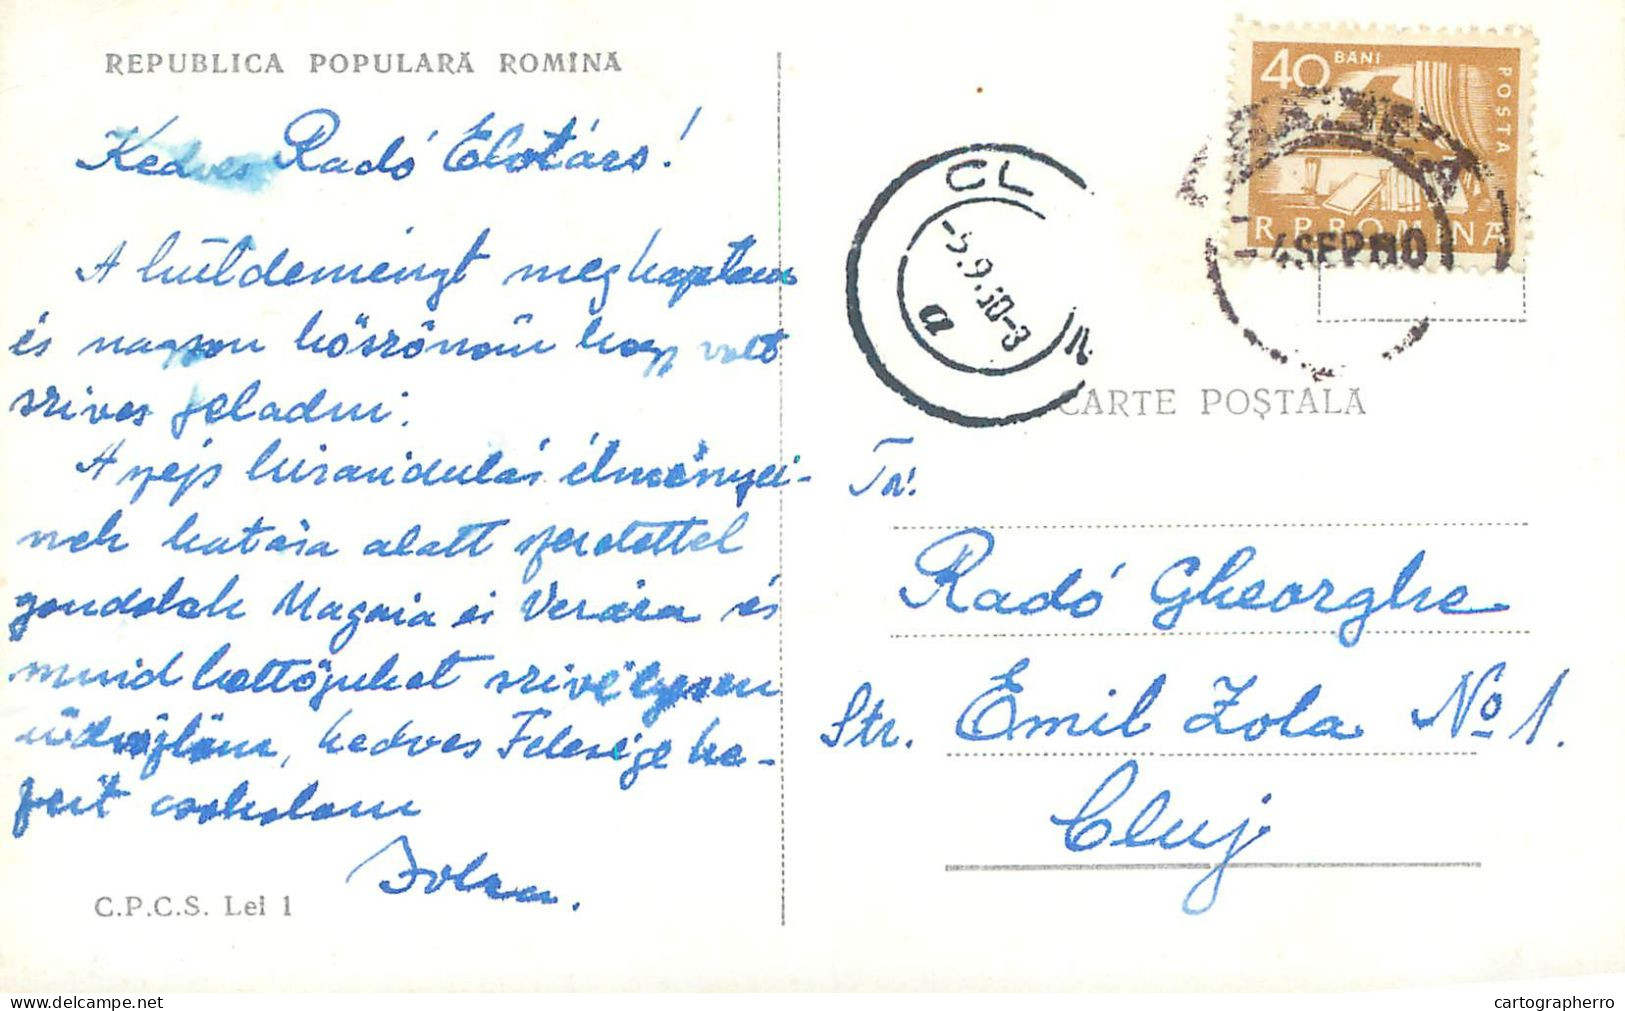 REPUBLICA POPULARĂ ROMÎNĂ
Kedves Radó Elvtárs!
A küldeményt megkaptam
és nagyon köszönöm hogy volt
szives feladni.
A kirándulás élményei-
nek hatása alatt szeretettel
gondolok Magára és Verára és
mind kettőjüket szivélyesen
üdvözlöm, kedves Felesége ke-
zeit csokolom
C.P.C.S. Lei 1
40 BANI
POSTA
R.P.ROMINA
4 SEP
CL
-5.9.60-3
a
CARTE POŞTALĂ
Tov.
Radó Gheorghe
Str. Emil Zola No 1.
Cluj
delcampe.net
cartographerro